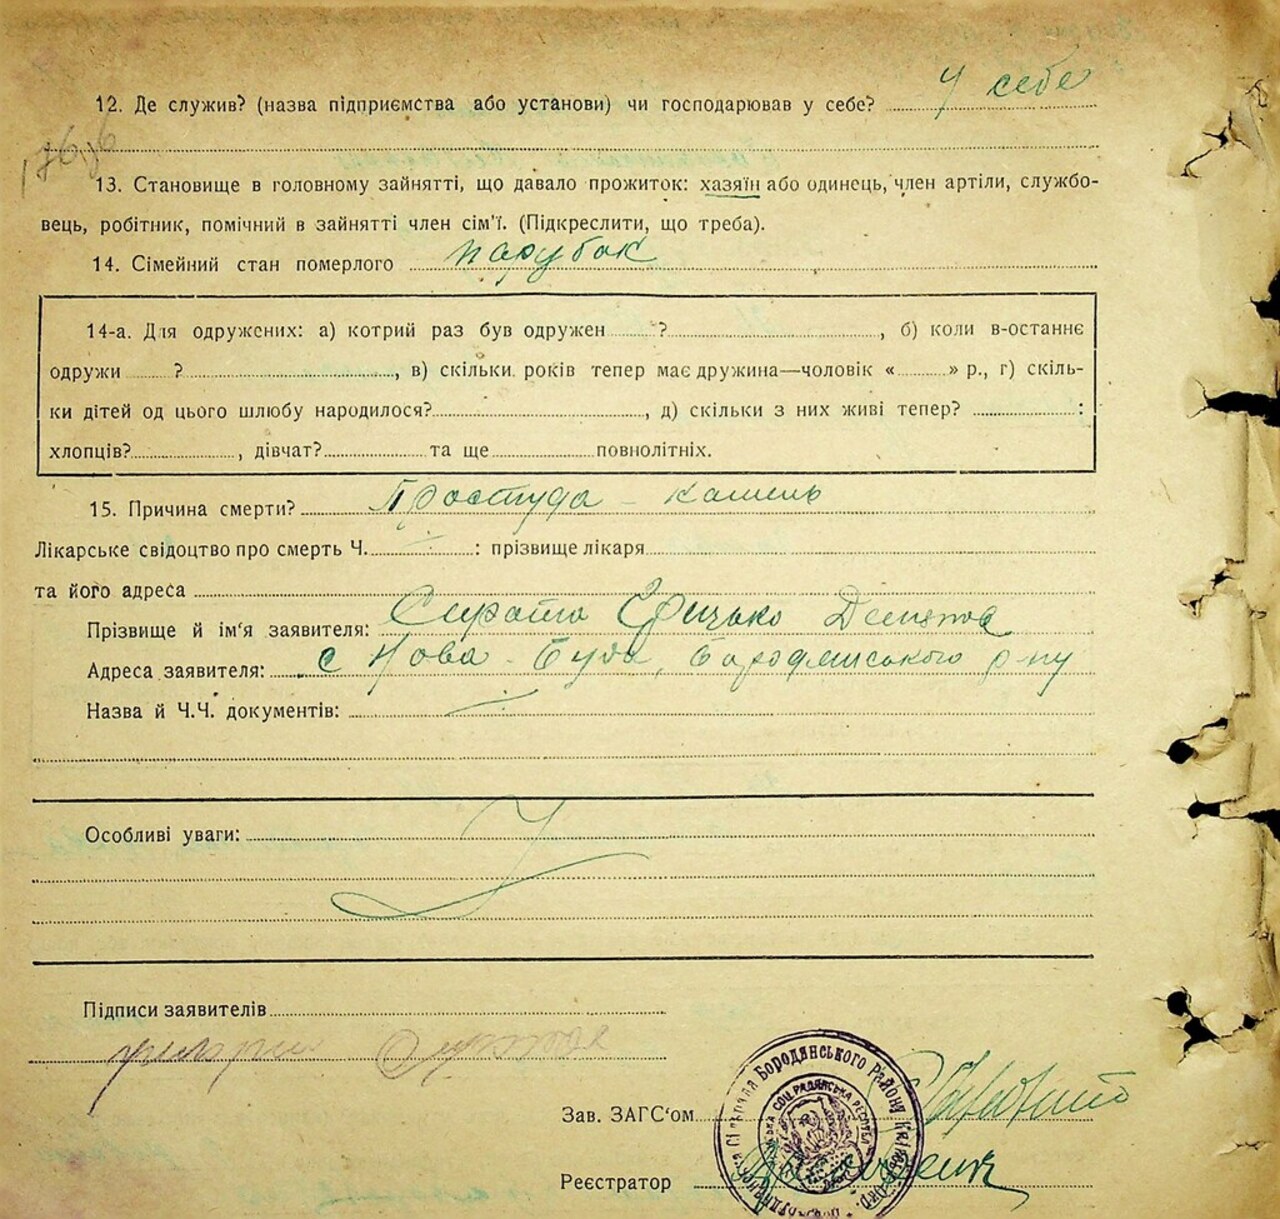 12. Де служив? (назва підприємства або установи) чи господарював у себе? У себе
13. Становище в головному зайнятті, що давало прожиток: хазяїн або одинець, член артіли, службо-
вець, робітник, помічний в зайнятті член сім'ї. (Підкреслити, що треба).
14. Сімейний стан померлого парубок
14-а. Для одружених: а) котрий раз був одружен ? , б) коли в-останнє
одружи ? , в) скільки років тепер має дружина—чоловік « » р., г) скіль-
ки дітей од цього шлюбу народилося? , д) скільки з них живі тепер? :
хлопців? , дівчат? та ще повнолітніх.
15. Причина смерти? Простуда - кашель
Лікарське свідоцтво про смерть Ч. : прізвище лікаря
та його адреса
Прізвище й ім'я заявителя: Сирота Грицько
Адреса заявителя: с Нова-Буда, Бородянського р-ну
Назва й Ч.Ч. документів:
Особливі уваги:
Підписи заявителів
Зав. ЗАГС'ом
Реєстратор
Бородянського Району